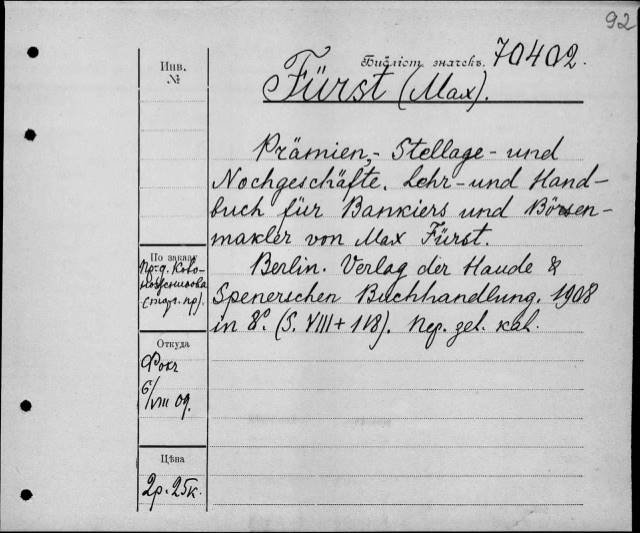 92
Библіот. значекъ. 70402.
Инв.
№
Fürst (Max).
Prämien,- Stellage- und
Nochgeschäfte. Lehr- und Hand-
buch für Bankiers und Börsen-
makler von Max Fürst.
Berlin. Verlag der Haude &
Spenerschen Buchhandlung. 1908
in 8°. (S. VIII + 118). пер. зел. кал.
По заказу
Пр-д.
(торг. пр).
Откуда
Фокъ
6/VIII 09.
Цѣна
2р. 25к.